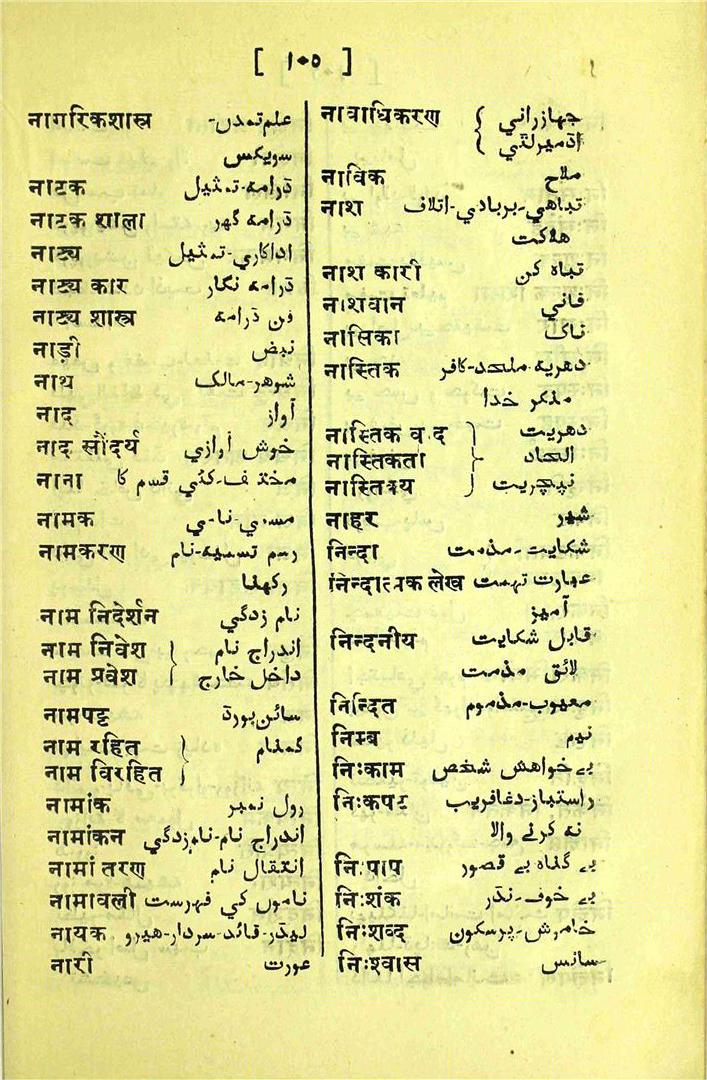 [ ۱۰۵ ]
नागरिकशास्त्र علم تمدن-
سویکس
नाटक ڈرامہ-تمثیل
नाटक शाला ڈرامہ گھر
नाट्य اداکاری-تمثیل
नाट्य कार ڈرامہ نگار
नाट्य शास्त्र فن ڈرامہ
नाड़ी نبض
नाथ شوہر-مالک
नाद آواز
नाद सौंदर्य خوش آوازی
नाना مختلف-کئی قسم کا
नामक مسمی-نامی
नामकरण رسم تسمیہ-نام
رکھنا
नाम निदेर्शन نام زدگی
नाम निवेश } اندراج نام
नाम प्रवेश } داخل خارج
नामपट्ट سائن بورڈ
नाम रहित } گمنام
नाम विरहित }
नामांक رول نمبر
नामांकन اندراج نام-نامزدگی
नामांतरण انتقال نام
नामावली ناموں کی فہرست
नायक لیڈر-قائد-سردار-ہیرو
नारी عورت
नावाधिकरण { جہازرانی
اڈمیرلٹی
नाविक ملاح
नाश تباہی-بربادی-اتلاف
ہلاکت
नाश कारी تباہ کن
नाशवान فانی
नासिका ناک
नास्तिक دہریہ-ملحد-کافر
منکر خدا
नास्तिक वाद } دہریت
नास्तिकता } الحاد
नास्तिक्य } نیچریت
नाहर شیر
निन्दा شکایت-مذمت
निन्दात्मक लेख عبارت تہمت
آمیز
निन्दनीय قابل شکایت
لائق مذمت
निन्दित معیوب-مذموم
निम्ब نیم
निःकाम بے خواہش شخص
निःकपट راستباز-دغافریب
نہ کرنے والا
निःपाप بے گناہ بے قصور
निःशंक بے خوف-نڈر
निःशब्द خاموش-پرسکون
निःश्वास سانس